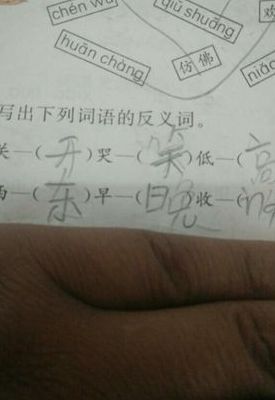 chén wù
qiū shuǎng
欢
huān chàng
仿佛
niǎo
写出下列词语的反义词。
关—(开)哭—(笑)低—(高
西—(东)早—(晚)收—(